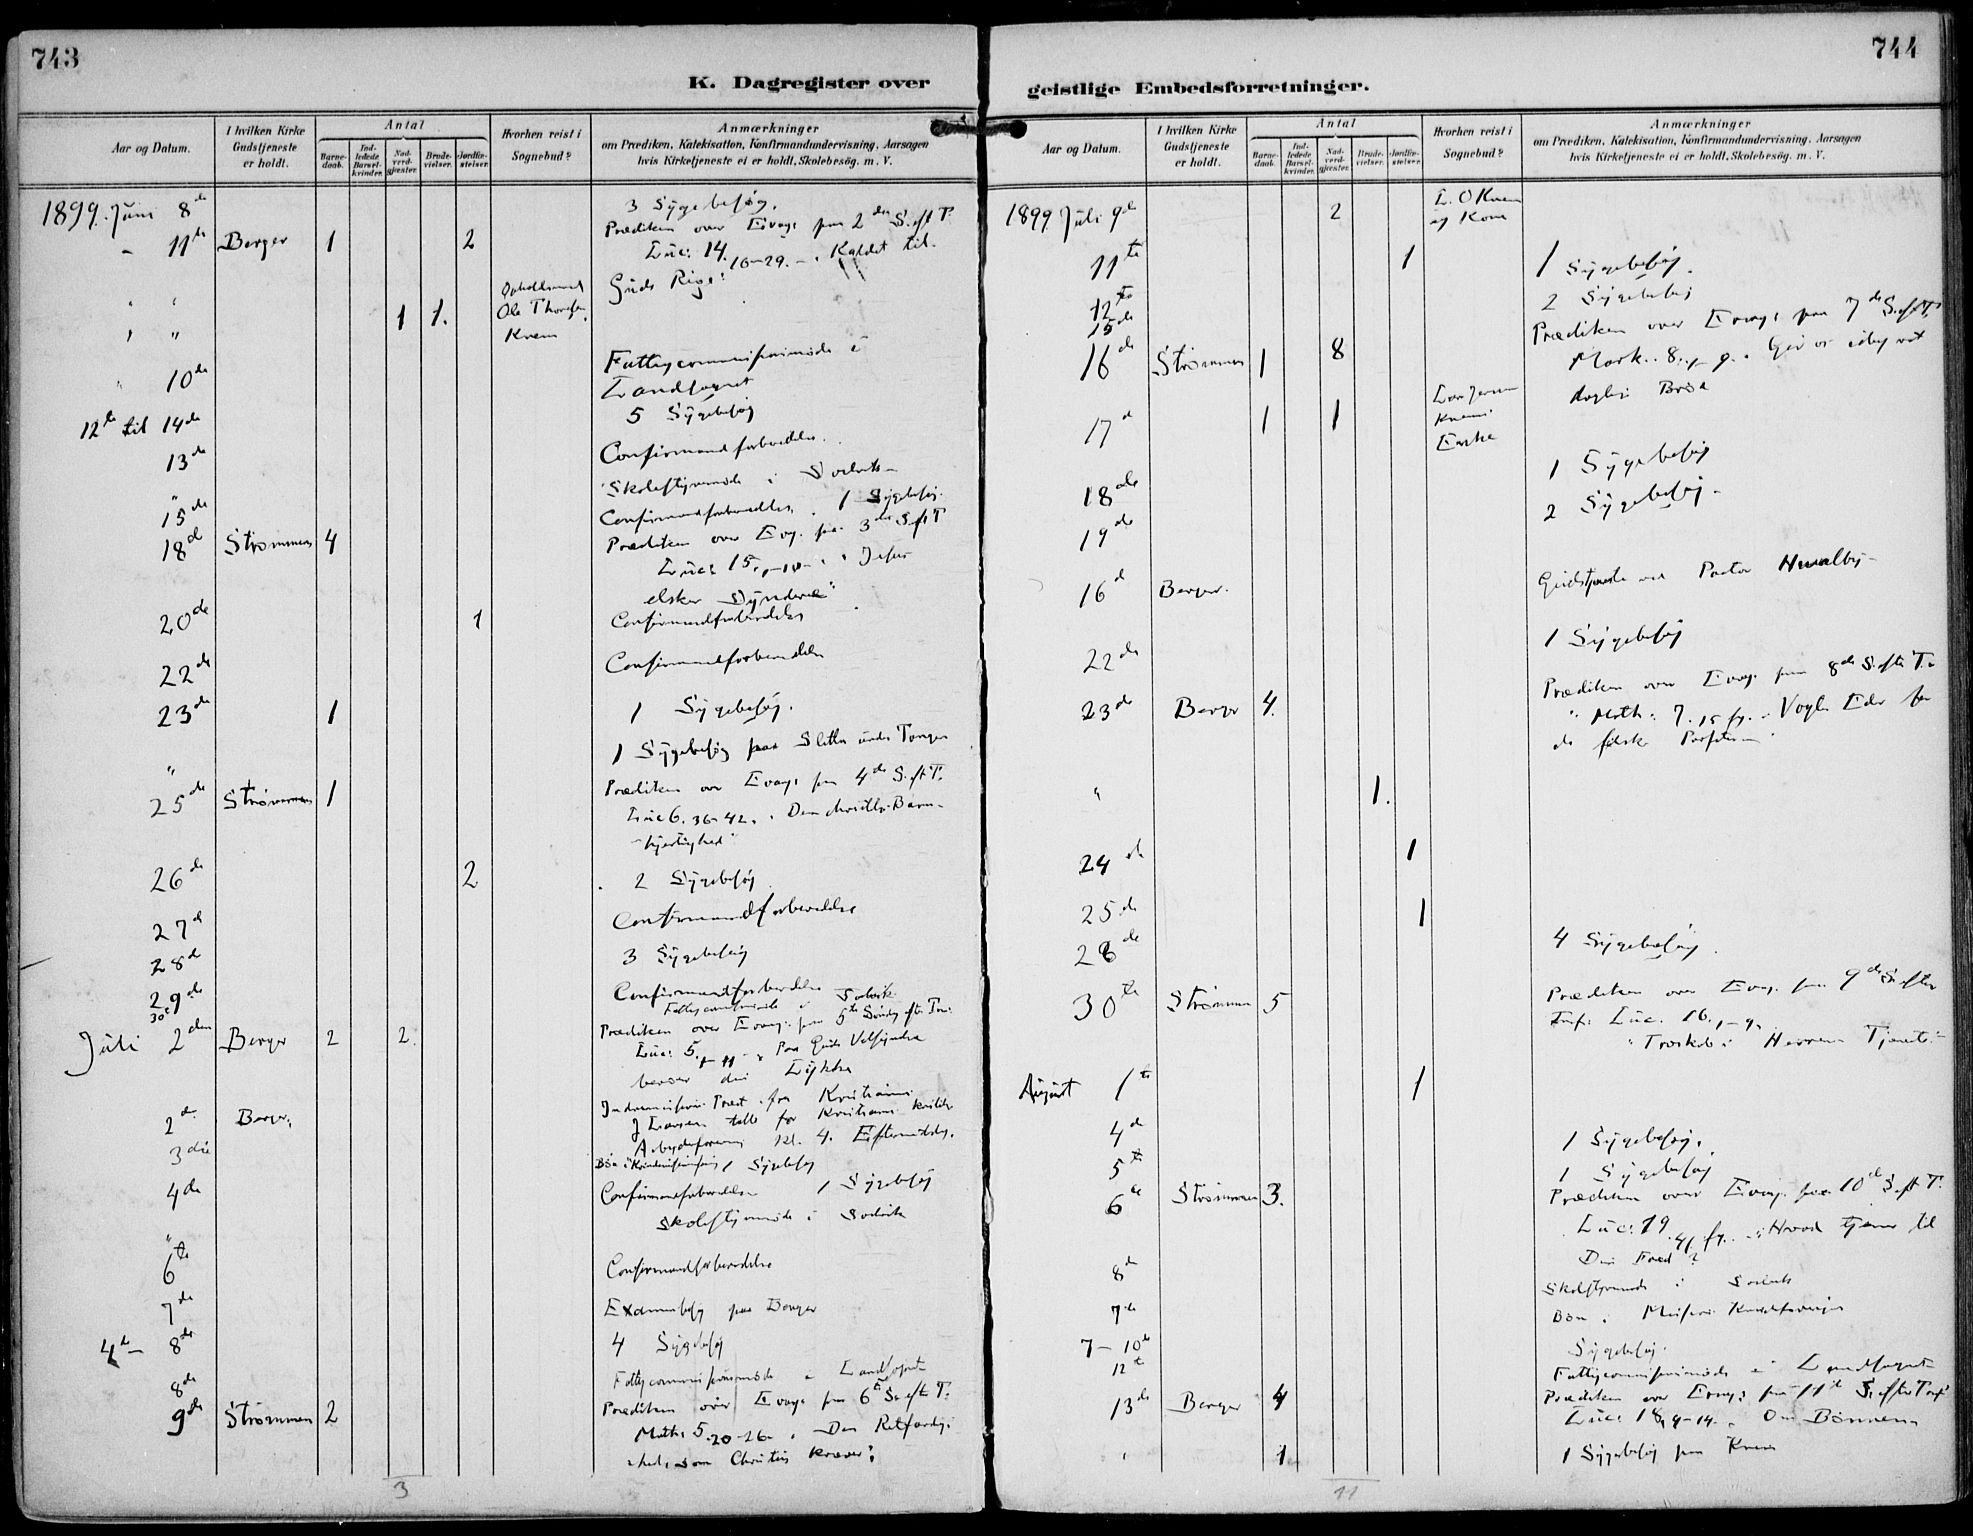 743
K. Dagregister over
Aar og Datum.
I hvilken Kirke Gudstjeneste er holdt.
Antal
Barnedaab.
Indledede Barselkvinder.
Nadverdgjæster.
Brudevielser.
Jordfæstelser.
Hvorhen reist i Sognebud?
Anmærkninger
om Prædiken, Katekisation, Konfirmandundervisning, Aarsagen
hvis Kirketjeneste ei er holdt, Skolebesög, m. V.
1899. Juni 8de 3 Sygebesøg.
" 11te Berger 1 2 Prædiken over Evang: paa 2den S. eft T.
Luc: 14. 16-24. Kaldet til
Guds Rige:
" " 1 1. Ole Thoresen
" " Kvern
" 10de Fattigcommissionsmøde i
Landsognet
12te til 14de 5 Sygebesøg
13de Confirmandforberedelse.
" Skolestyremøde i Svelvik
15de Confirmandforberedelse. 1 Sygebesøg.
18de Strømmen 4 Prædiken over Evg. paa 3die S. eft T
Luc: 15. 1-10 " Jesus
elsker Syndere"
20de 1 Confirmandforberedelse
22de Confirmandforberedelse
23de 1 1 Sygebesøg.
" 1 Sygebesøg paa Sletta under Tangen
25de Strømmen 1 Prædiken over Evang: paa 4de S. eft T.
Luc 6. 36-42. " Den christlige Barm-
hjertighed"
26de 2 2 Sygebesøg
27de Confirmandforberedelse
28de 3 Sygebesøg
29de Confirmandforberedelse
30te Fattigcommissionsmøde i Svelvik
Juli 2den Berger 2 2. Prædiken over Evang: paa 5te Søndag efter Trin:
Luc: 5. 1-11 " Paa Guds Velsignelse
beroer din Lykke
2den Berger. Indremissions Præst fra Kristiania
J Larsen talte for Kristiania kristelige
Arbeiderforening kl. 4. Eftermiddag.
3die 1 Sygebesøg
4de Confirmandforberedelse 1 Sygebesøg
" Skolestyremøde i Svelvik
6te Confirmandforberedelse
7de Examensbesøg paa Berger
4de - 8de 4 Sygebesøg
8de Fattigcommissionsmøde i Landsognet
9de Strømmen 2 Prædiken over Evang: paa 6te S. eft T.
Math: 5. 20-26. " Den Retfærdig-
hed, som Christus kræver"
3
744
geistlige Embedsforretninger.
Aar og Datum.
I hvilken Kirke Gudstjeneste er holdt.
Antal
Barnedaab.
Indledede Barselkvinder.
Nadverdgjæster.
Brudevielser.
Jordfæstelser.
Hvorhen reist i Sognebud?
Anmærkninger
om Prædiken, Katekisation, Konfirmandundervisning, Aarsagen
hvis Kirketjeneste ei er holdt, Skolebesög, m. V.
1899 Juli 9de 2 L. O Kvern
og Kone
11te 1 1 Sygebesøg.
12te 2 Sygebesøg
15de
16de Strømmen 1 8 Prædiken over Evang: paa 7de S. eft T.
Mark. 8. 1-9. " Giv os idag vort
daglige Brød
17de 1 1 Kverns
Enke
18de 1 Sygebesøg
19de 2 Sygebesøg.
16de Berger. Gudstjeneste ved Pastor
22de 1 Sygebesøg
23de Berger 4. Prædiken over Evang. paa 8de S. efter T.
" Math: 7. 15 fg. " Vogter Eder for
de falske Profeter
" 1.
24de 1
25de 1
28de 4 Sygebesøg.
30te Strømmen 5 Prædiken over Evang. paa 9de S. efter
Luc. 16. 1-9.
" Troskab i Herrens Tjeneste"
August 1te 1
4de 1 Sygebesøg.
5te 1 Sygebesøg
6te Strømmen 3. Prædiken over Evang. paa 10de S. eft T.
Luc: 19. 41 fg. " Hvad tjener til
Din Fred?
8de Skolestyremøde i Svelvik
7de
7-10de Sygebesøg.
12te Fattigcommissionsmøde i Landsognet
13de Berger 4 Prædiken over Evang: paa 11te S. efter Trif
Luc: 18, 9-14. " Om Bønnen
" 1 1 Sygebesøg paa Kvern
11